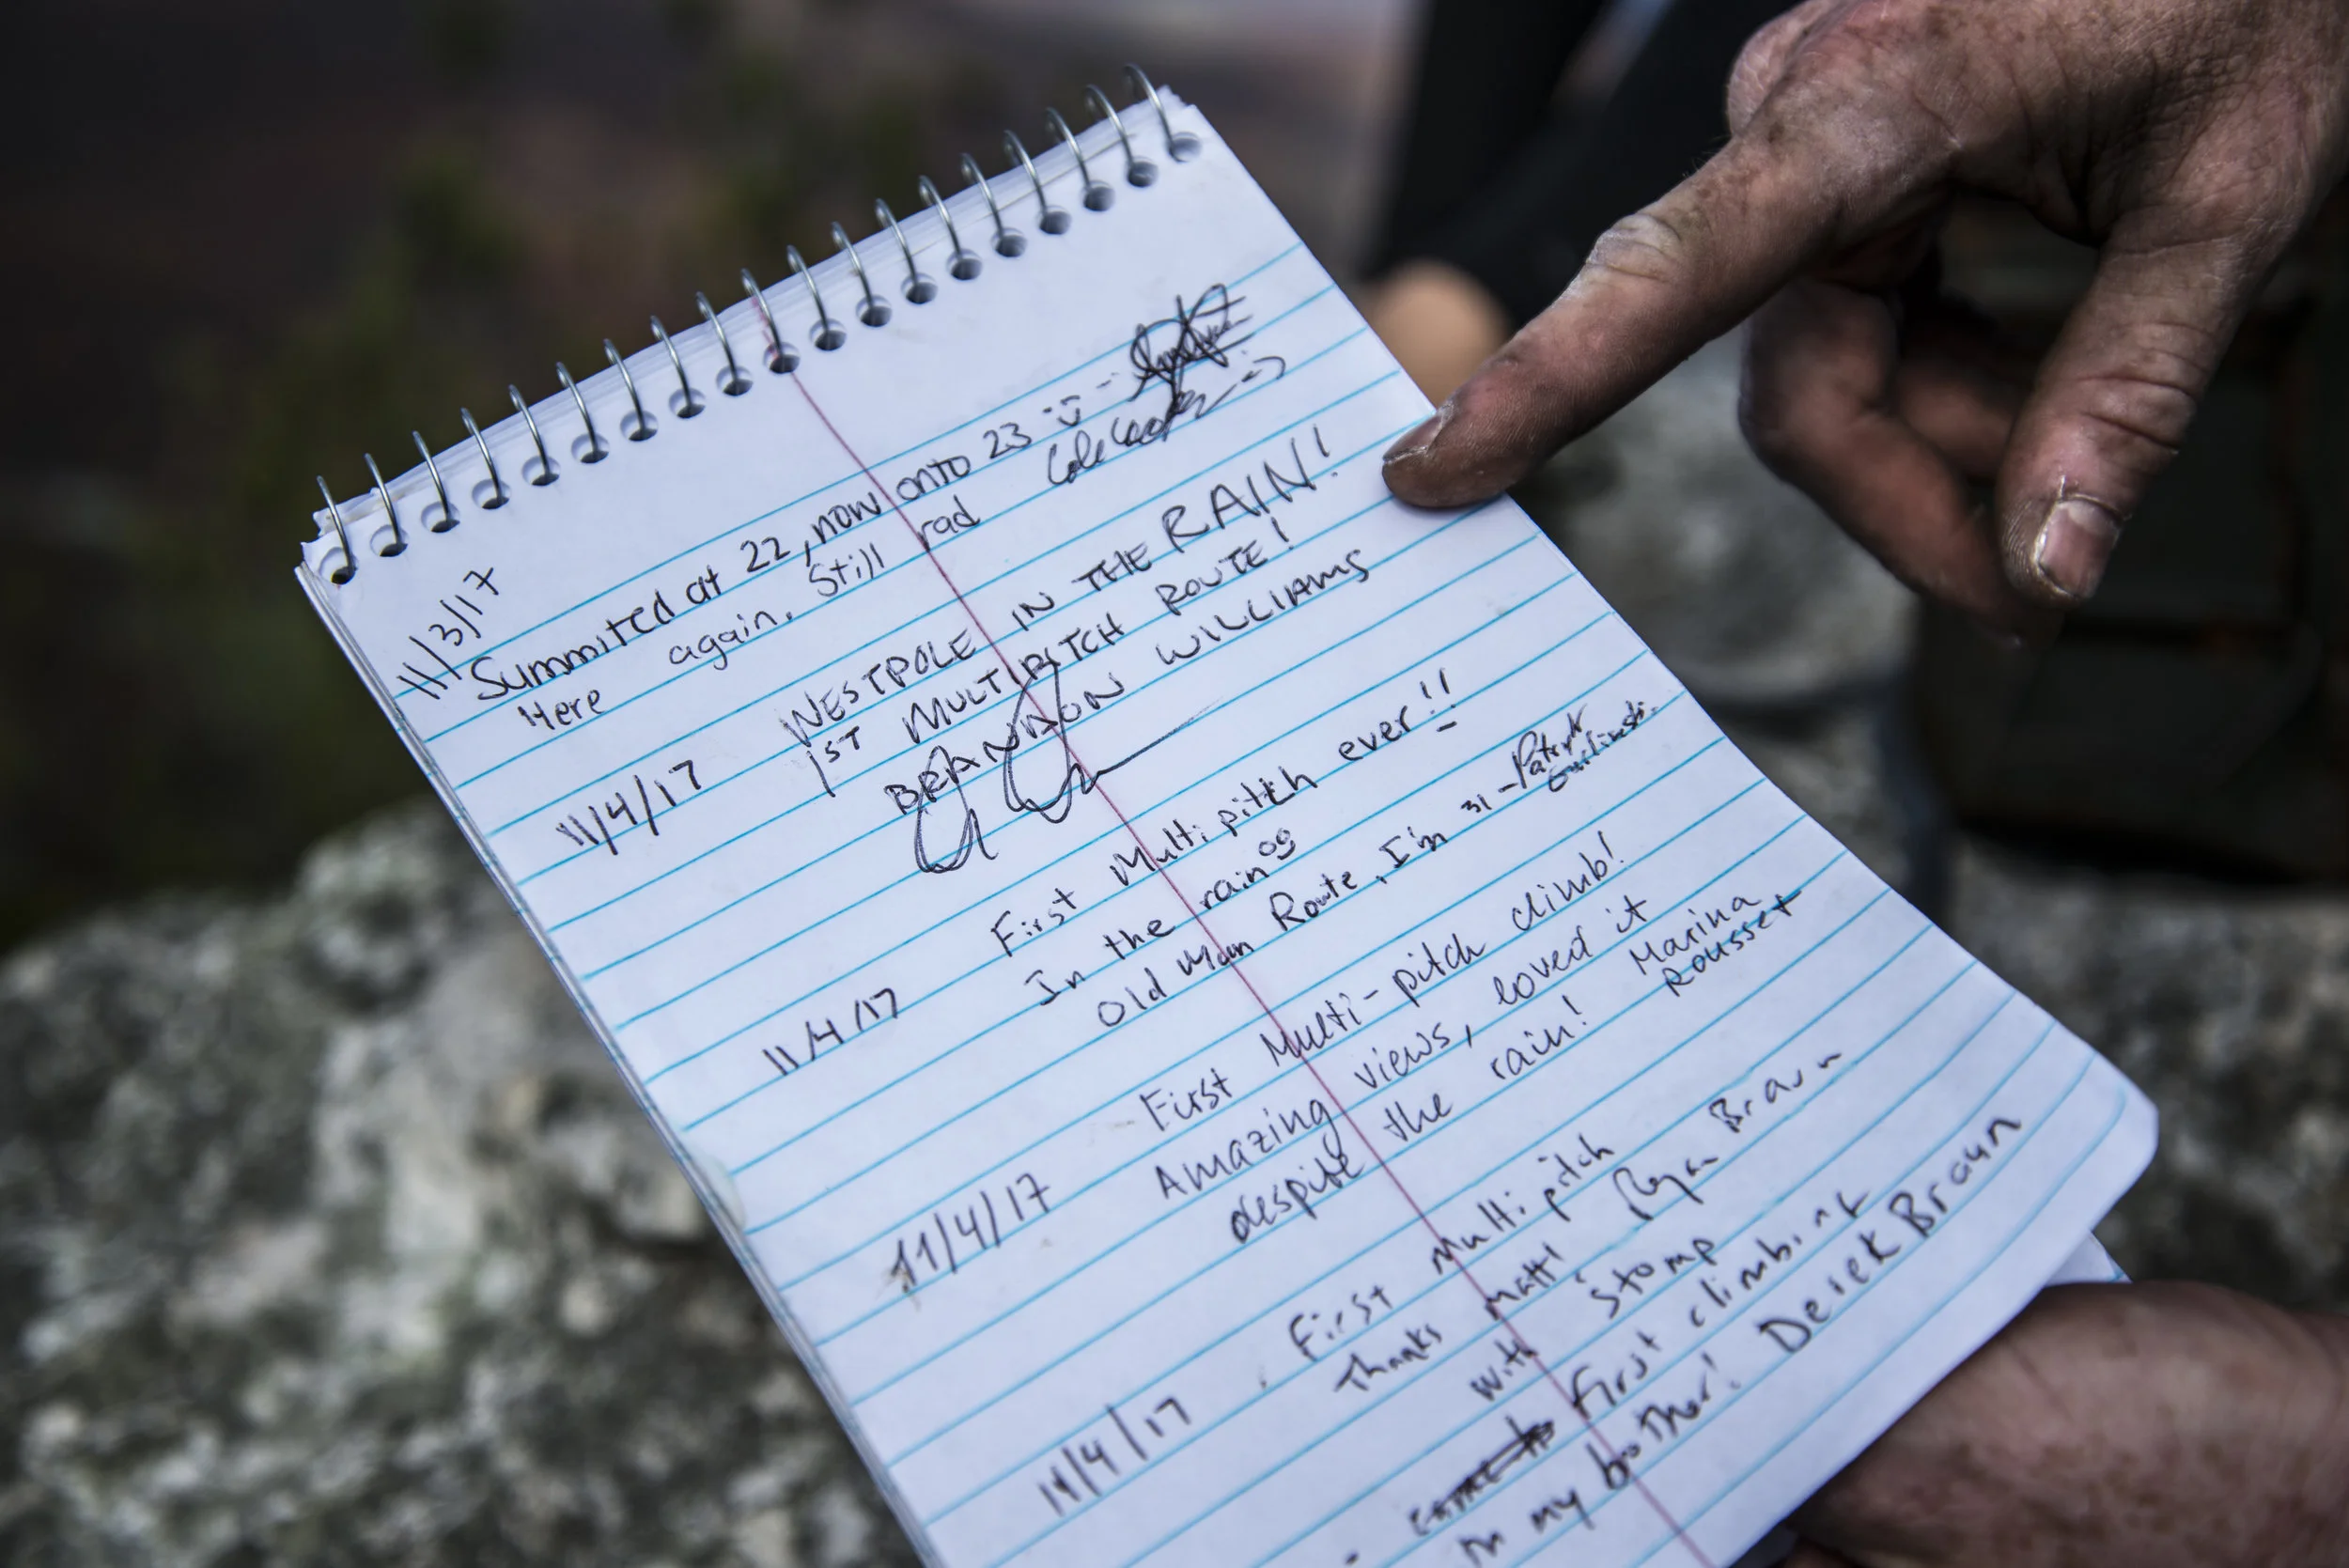 11/3/17
Summited at 22, now onto 23 :)
Here again. Still rad Cole :)
11/4/17 WESTPOLE IN THE RAIN!
1ST MULTIPITCH ROUTE!
BRANDON WILLIAMS
11/4/17 First Multi pitch ever!!
In the rain
Old Man Route, I'm 31 - Patryk
11/4/17 First Multi-pitch climb!
Amazing views, loved it
despite the rain! Marina
Rousset
11/4/17 First Multi pitch
Thanks Matt! Ryan Braun
with Stomp
First climbing
in my brother! Derek Braun